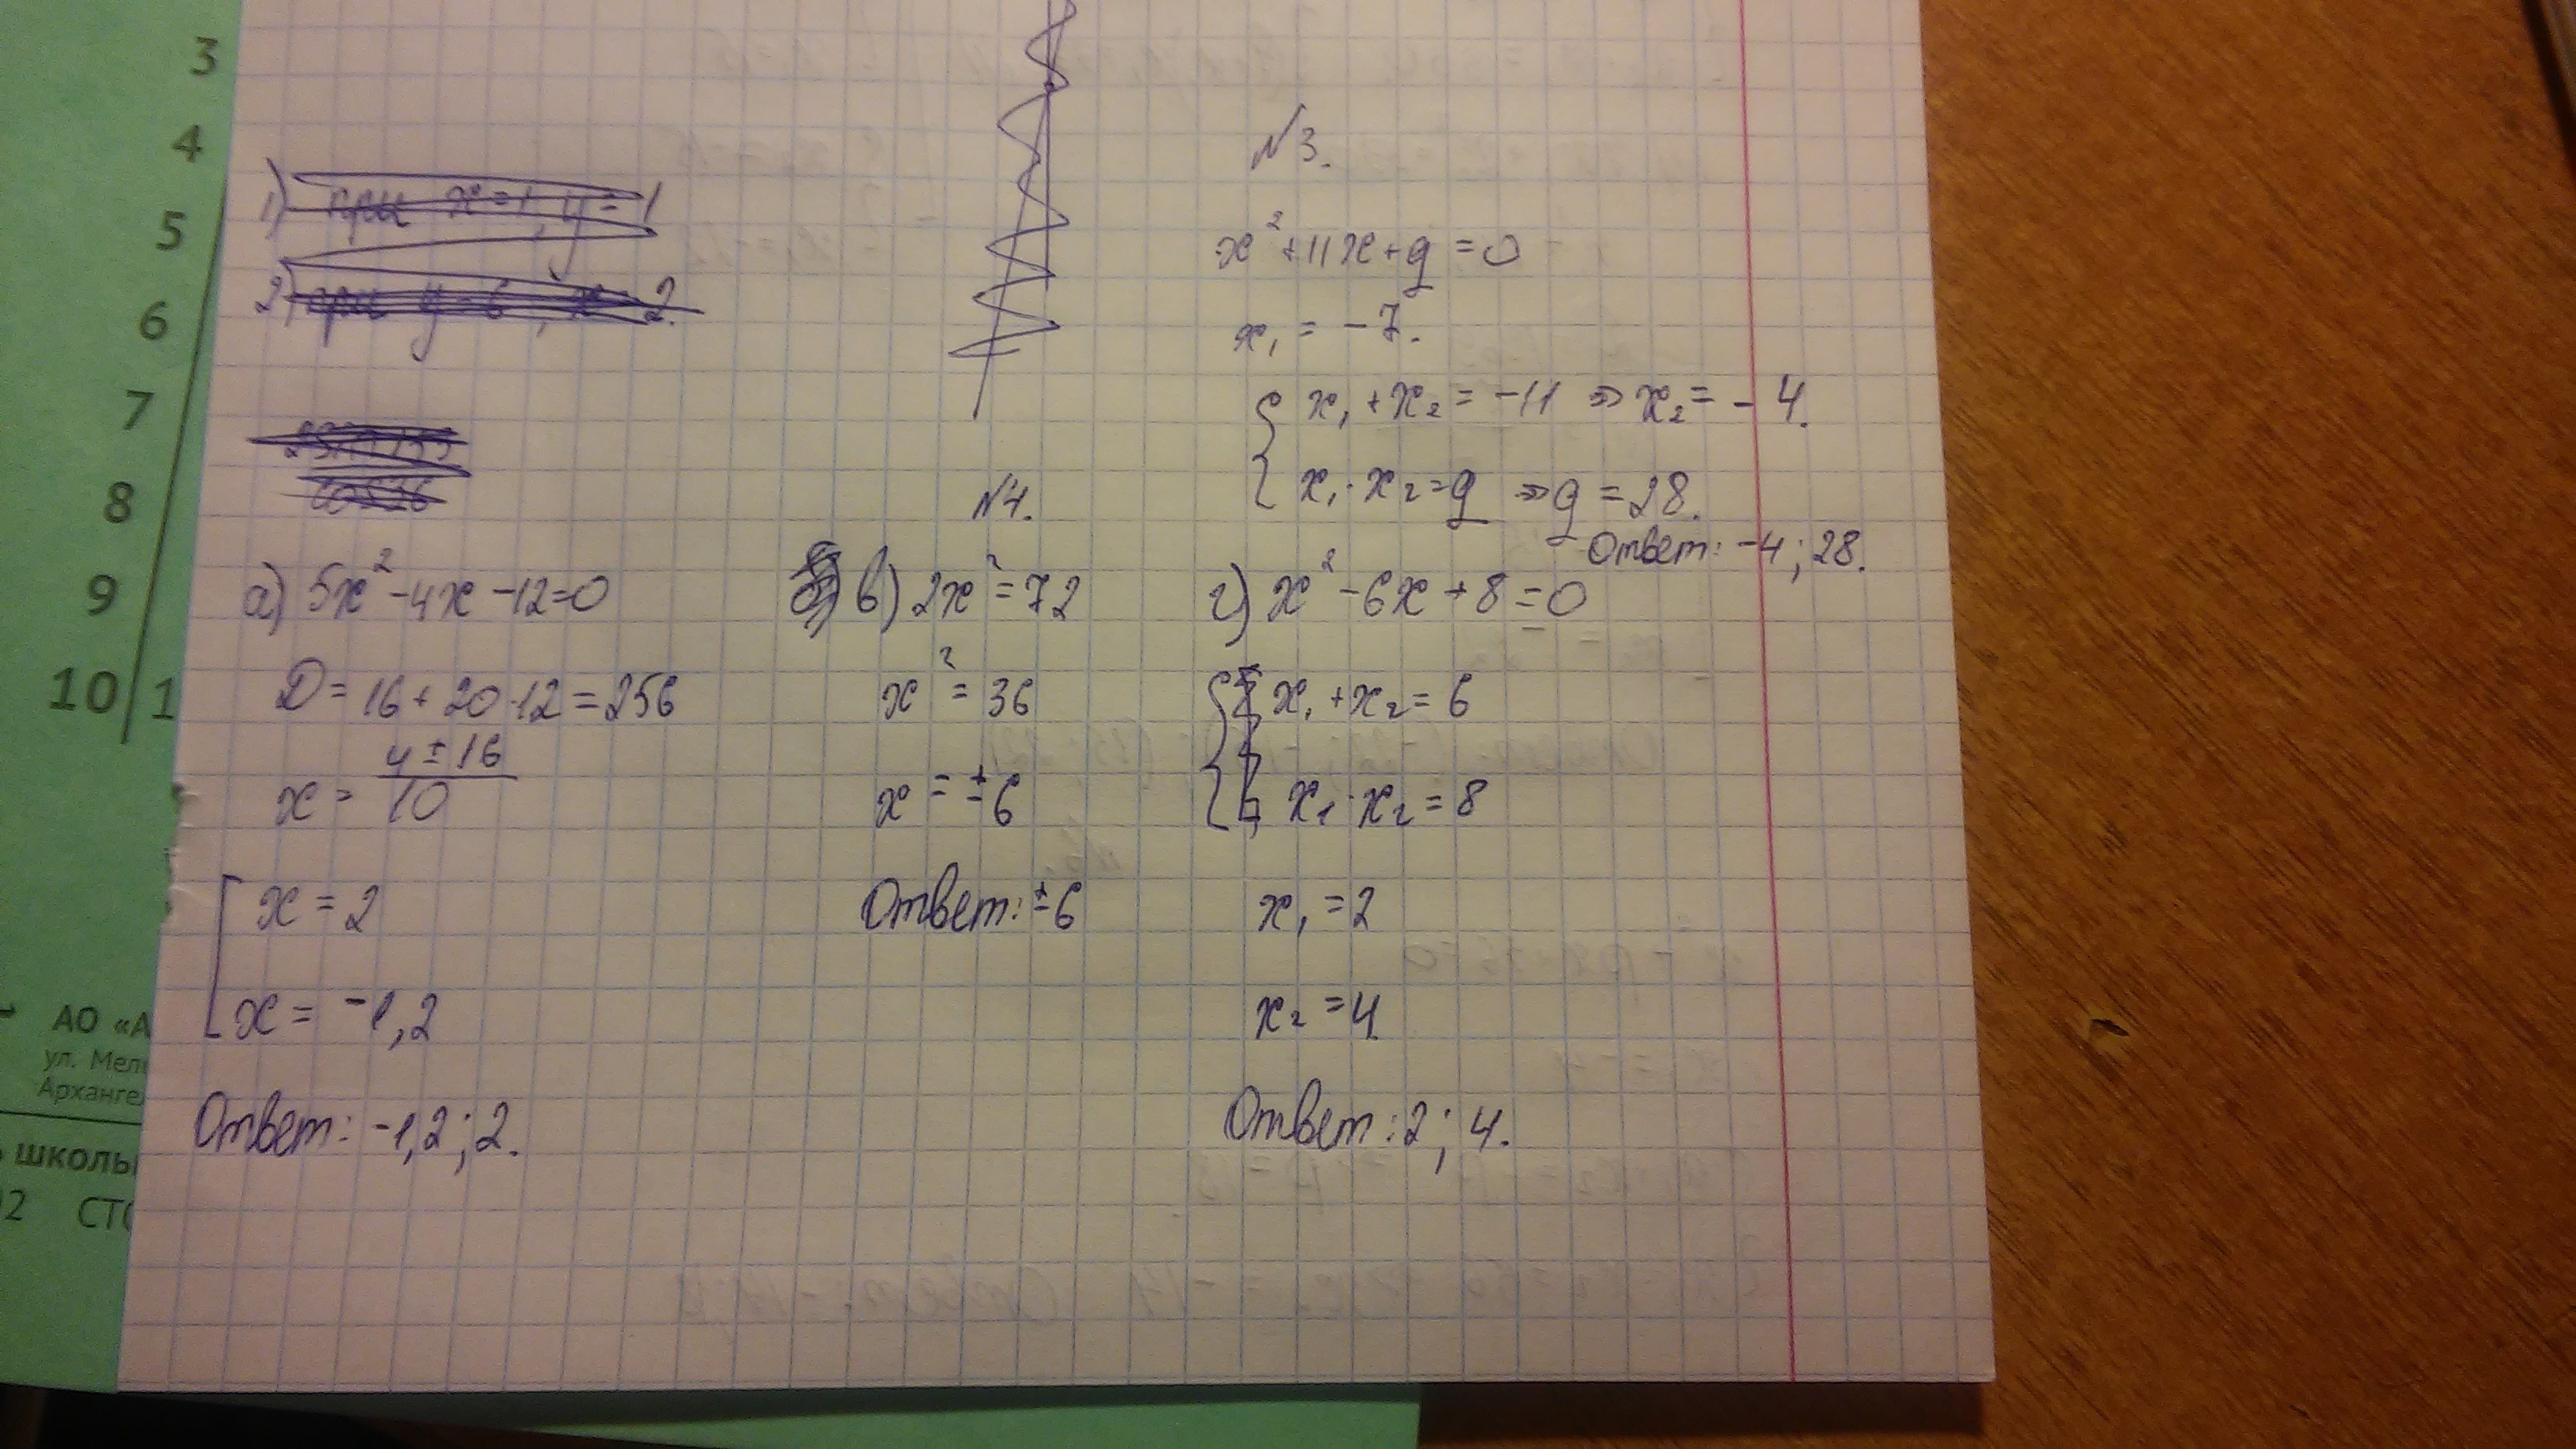 3
4
5
6
7
8
9
10 1
АО «А
ул. Мел
Арханге
школь
02 СТО
1) при x=1, y=1
2) при y=6, x=2.
N3.
x²+11x+q=0
x₁ = -7.
x₁+x₂=-11 ⇒ x₂=-4.
x₁·x₂=q ⇒ q=28.
Ответ: -4; 28.
N4.
а) 5x²-4x-12=0
D=16+20·12=256
x= (4±16)/10
x=2
x=-1,2
Ответ: -1,2; 2.
в) 2x²=72
x²=36
x=±6
Ответ: ±6
г) x²-6x+8=0
x₁+x₂=6
x₁·x₂=8
x₁=2
x₂=4
Ответ: 2; 4.